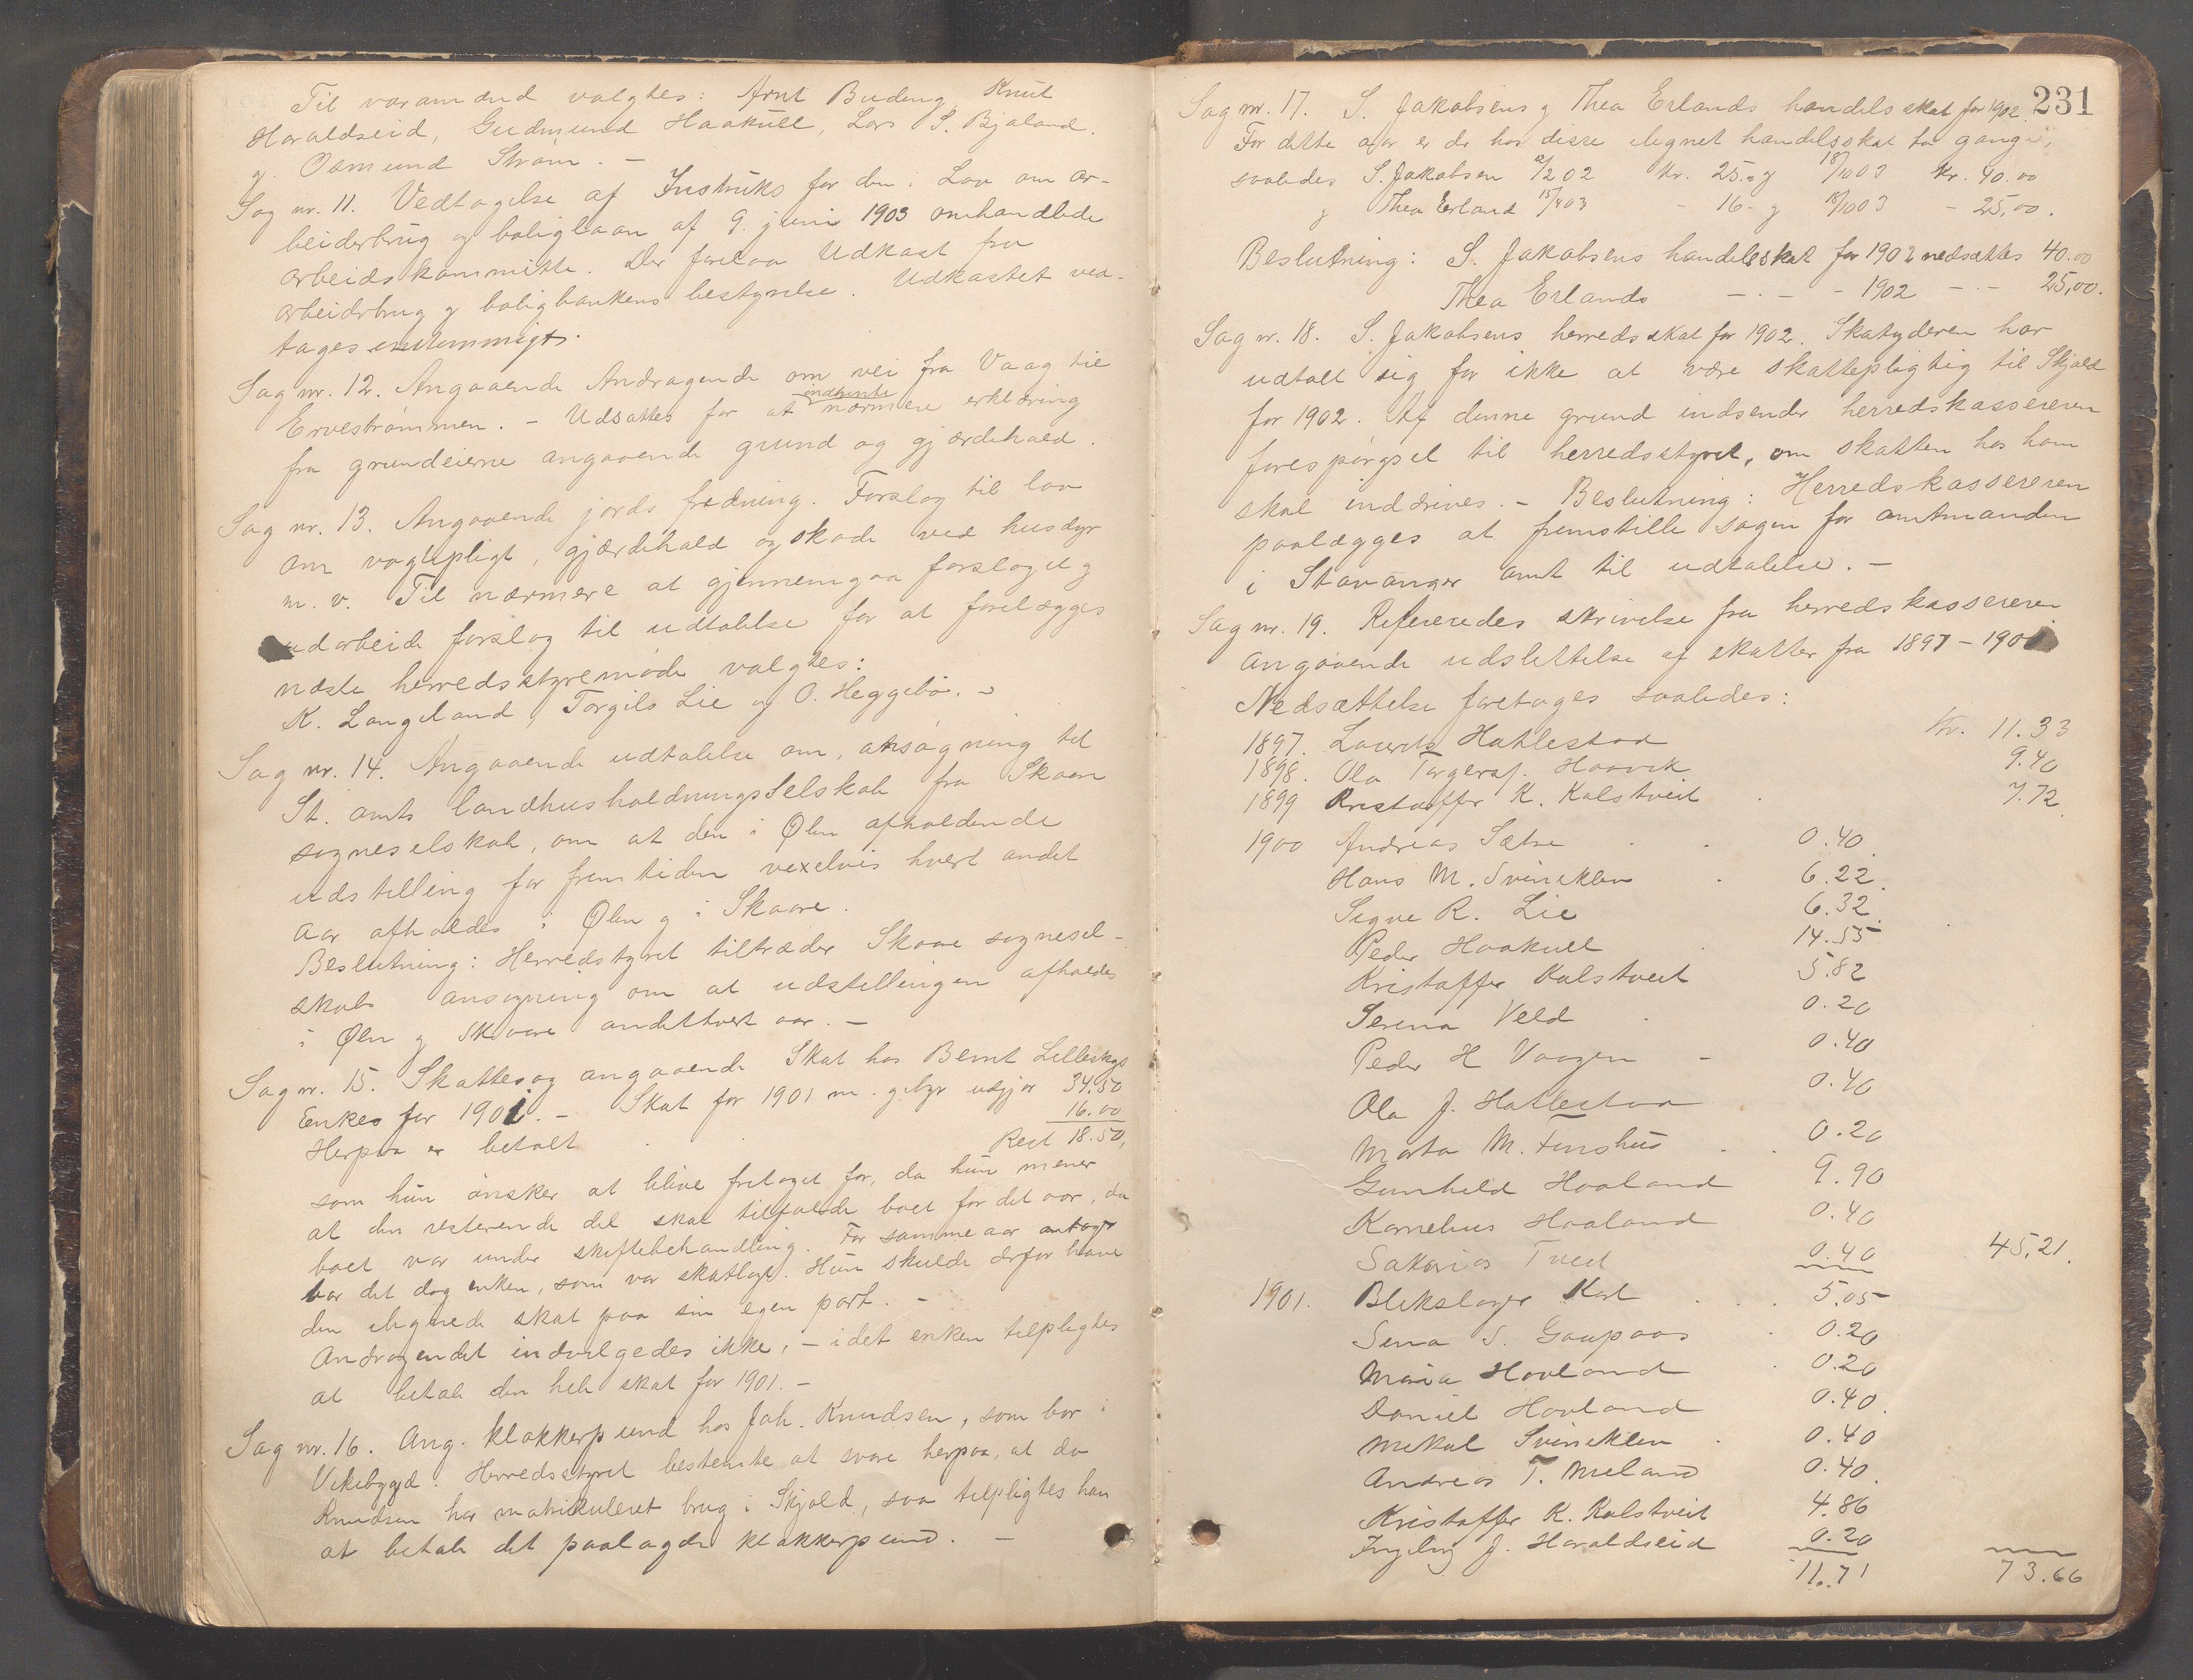 Til varamænd valgtes: Arnt Buding Knut
Haraldseid, Gudmund Haakull, Lars S. Bjaland
g. Osmund Strøm. —
Sag nr. 11. Vedtagelse af Instruks for den i Lov om ar-
beiderbrug og boliglaan af 9. juni 1903 omhandlede
arbeidskommitte. Der forelaa Udkast fra
arbeiderbrug g boligbankens bestyrelse. Udkastet ved-
tages enstemmigt.
Sag nr. 12. Angaaende Andragende om vei fra Vaag til
Ervestrømmen. – Udsattes for at indhente nærmere erklæring
fra grundeierne angaaende grund og gjærdehold.
Sag nr. 13. Angaaende jords fredning. Forslag til lov
om vogtepligt, gjærdehald og skade ved husdyr
m. v. Til nærmere at gjennemgaa forslaget g
udarbeide forslag til udtalelse for at forelægges
næste herredsstyremøde valgtes:
K. Langeland, Torgils Lie og O. Heggebø. –
Sag nr. 14. Angaaende udtalelse om, ansøgning til
St. amts landhusholdningsselskab fra Skaare
sogneselskab, om at den i Ølen afholdende
udstilling for fremtiden vexelvis hvert andet
aar afholdes i Ølen g i Skaare.
Beslutning: Herredstyret tiltræder Skaare sognesel-
skabs ansøgning om at udstillingen afholdes
i Ølen g Skaare andethvert aar. —
Sag nr. 15. Skattesag angaaende Skat hos Bernt Lilleskogs
Enkes for 1901. – Skat for 1901 m. gebyr udgjør 34.50
Herpaa er betalt 16.00
Rest 18.50,
som hun ønsker at blive fritaget for, da hun mener
at den resterende del skal tilfalde boet for det aar, da
boet var under skiftebehandling. For samme aar antages
var det dog enken, som var skatlagt. Hun skulde derfor have
den lignede skat paa sin egen part. –
Andragendet indvilgedes ikke, – idet enken tilpligtes
at betale den hele skat for 1901. –
Sag nr. 16. Ang. klokkerpund hos Jak. Knudsen, som bor i
Vikebygd. Herredsstyret bestemte at svare herpaa, at da
Knudsen har matrikuleret brug i Skjold, saa tilpligtes han
at betale det paalagde klokkerpund. —
231
Sag nr. 17. S. Jakobsens g Thea Erlands handelsskat for 1902.
For dette aar er der hos disse lignet handelsskat to gange,
saaledes S. Jakobsen 12/2 02 Kr. 25.- g 18/10 03 Kr. 40.00
g Thea Erland 15/4 03 – 16 – g 18/10 03 – 25,00.
Beslutning: S. Jakobsens handelsskat for 1902 nedsættes 40.00
Thea Erlands – . – – 1902 – . – 25,00.
Sag nr. 18. S. Jakobsens herredsskat for 1902. Skatyderen har
udtalt sig for ikke at være skattepligtig til Skjold
for 1902. Af denne grund indsender herredskassereren
forespørgsel til herredsstyret, om skatten hos ham
skal inddrives. – Beslutning: Herredskassereren
paalægges at fremstille sagen for amtmanden
i Stavanger amt til udtalelse. –
Sag nr. 19. Refereredes skrivelse fra herredskassereren
angaaende udslettelse af skatter fra 1897 – 1901
Nedsættelse foretages saaledes:
1897. Laurits Hatlestad Kr. 11.33
1898. Ola Torgersj. Haavik 9.40
1899 Kristoffer K. Kalstveit 7.72
1900 Andreas Sætre 0.40
Hans M. Svineklev 6.22
Signe R. Lie 6.32
Peder Haakull 14.55
Kristoffer Kalstveit 5.82
Serina Veld 0.20
Peder H Vaagen 0.40
Ola J. Hatlestad 0.40
Marta M. Finshus 0.20
Gunhild Haaland 9.90
Kornelius Haaland 0.40
Sakarias Tveit 0.40 45,21.
1901. Blikslager Karl 5.05
Sena S. Gaupaas 0.20
Maria Hovland 0.20
Daniel Hovland 0.40
Mikal Svineklev 0.40
Andreas T. Meland 0.40
Kristoffer K. Kalstveit 4.86
Ingeborg J. Haraldseid 0.20
11.71 73.66